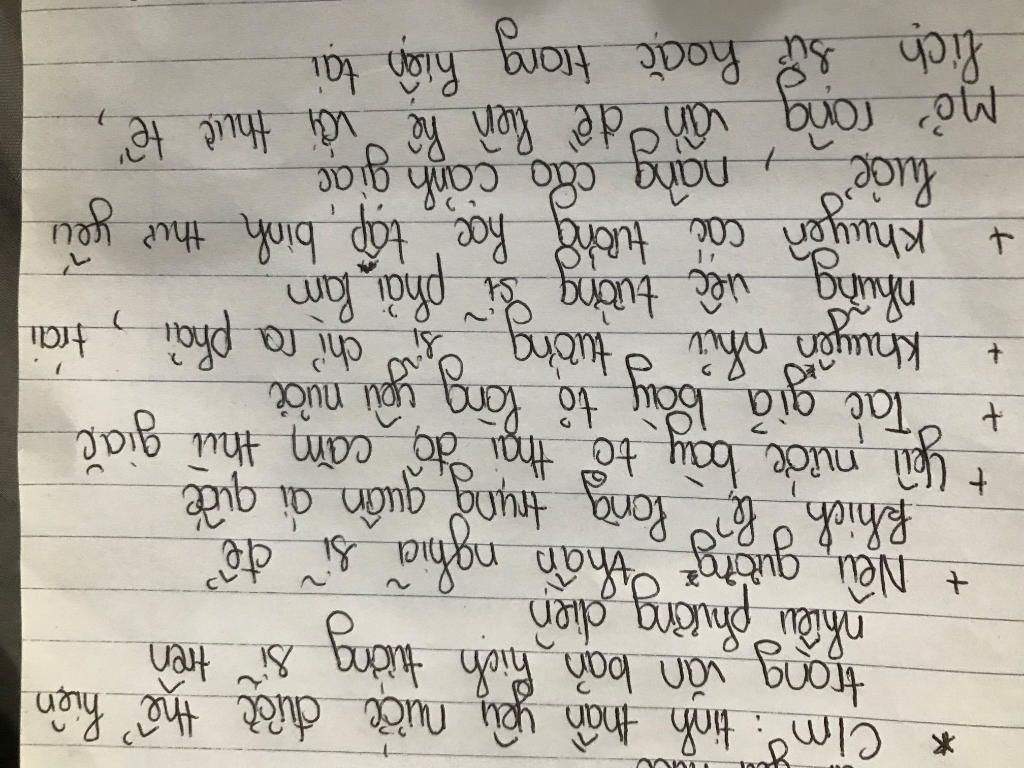 yêu nước
* C/m : tinh thần yêu nước được thể hiện
trong văn bản hịch tướng sĩ trên
nhiều phương diện
+ Nêu gương thần nghĩa sĩ để
khích lệ lòng trung quân ái quốc
+ yêu nước bày tỏ thái độ căm thù giặc
+ Tác giả bày tỏ lòng yêu nước
+ khuyên nhủ tướng sĩ chỉ ra phải , trái
những việc tướng sĩ phải làm
+ khuyên các tướng học tập binh thư yếu
lược , nâng cao cảnh giác
Mở rộng vấn đề liên hệ với thực tế ,
lịch sử hoặc trong hiện tại